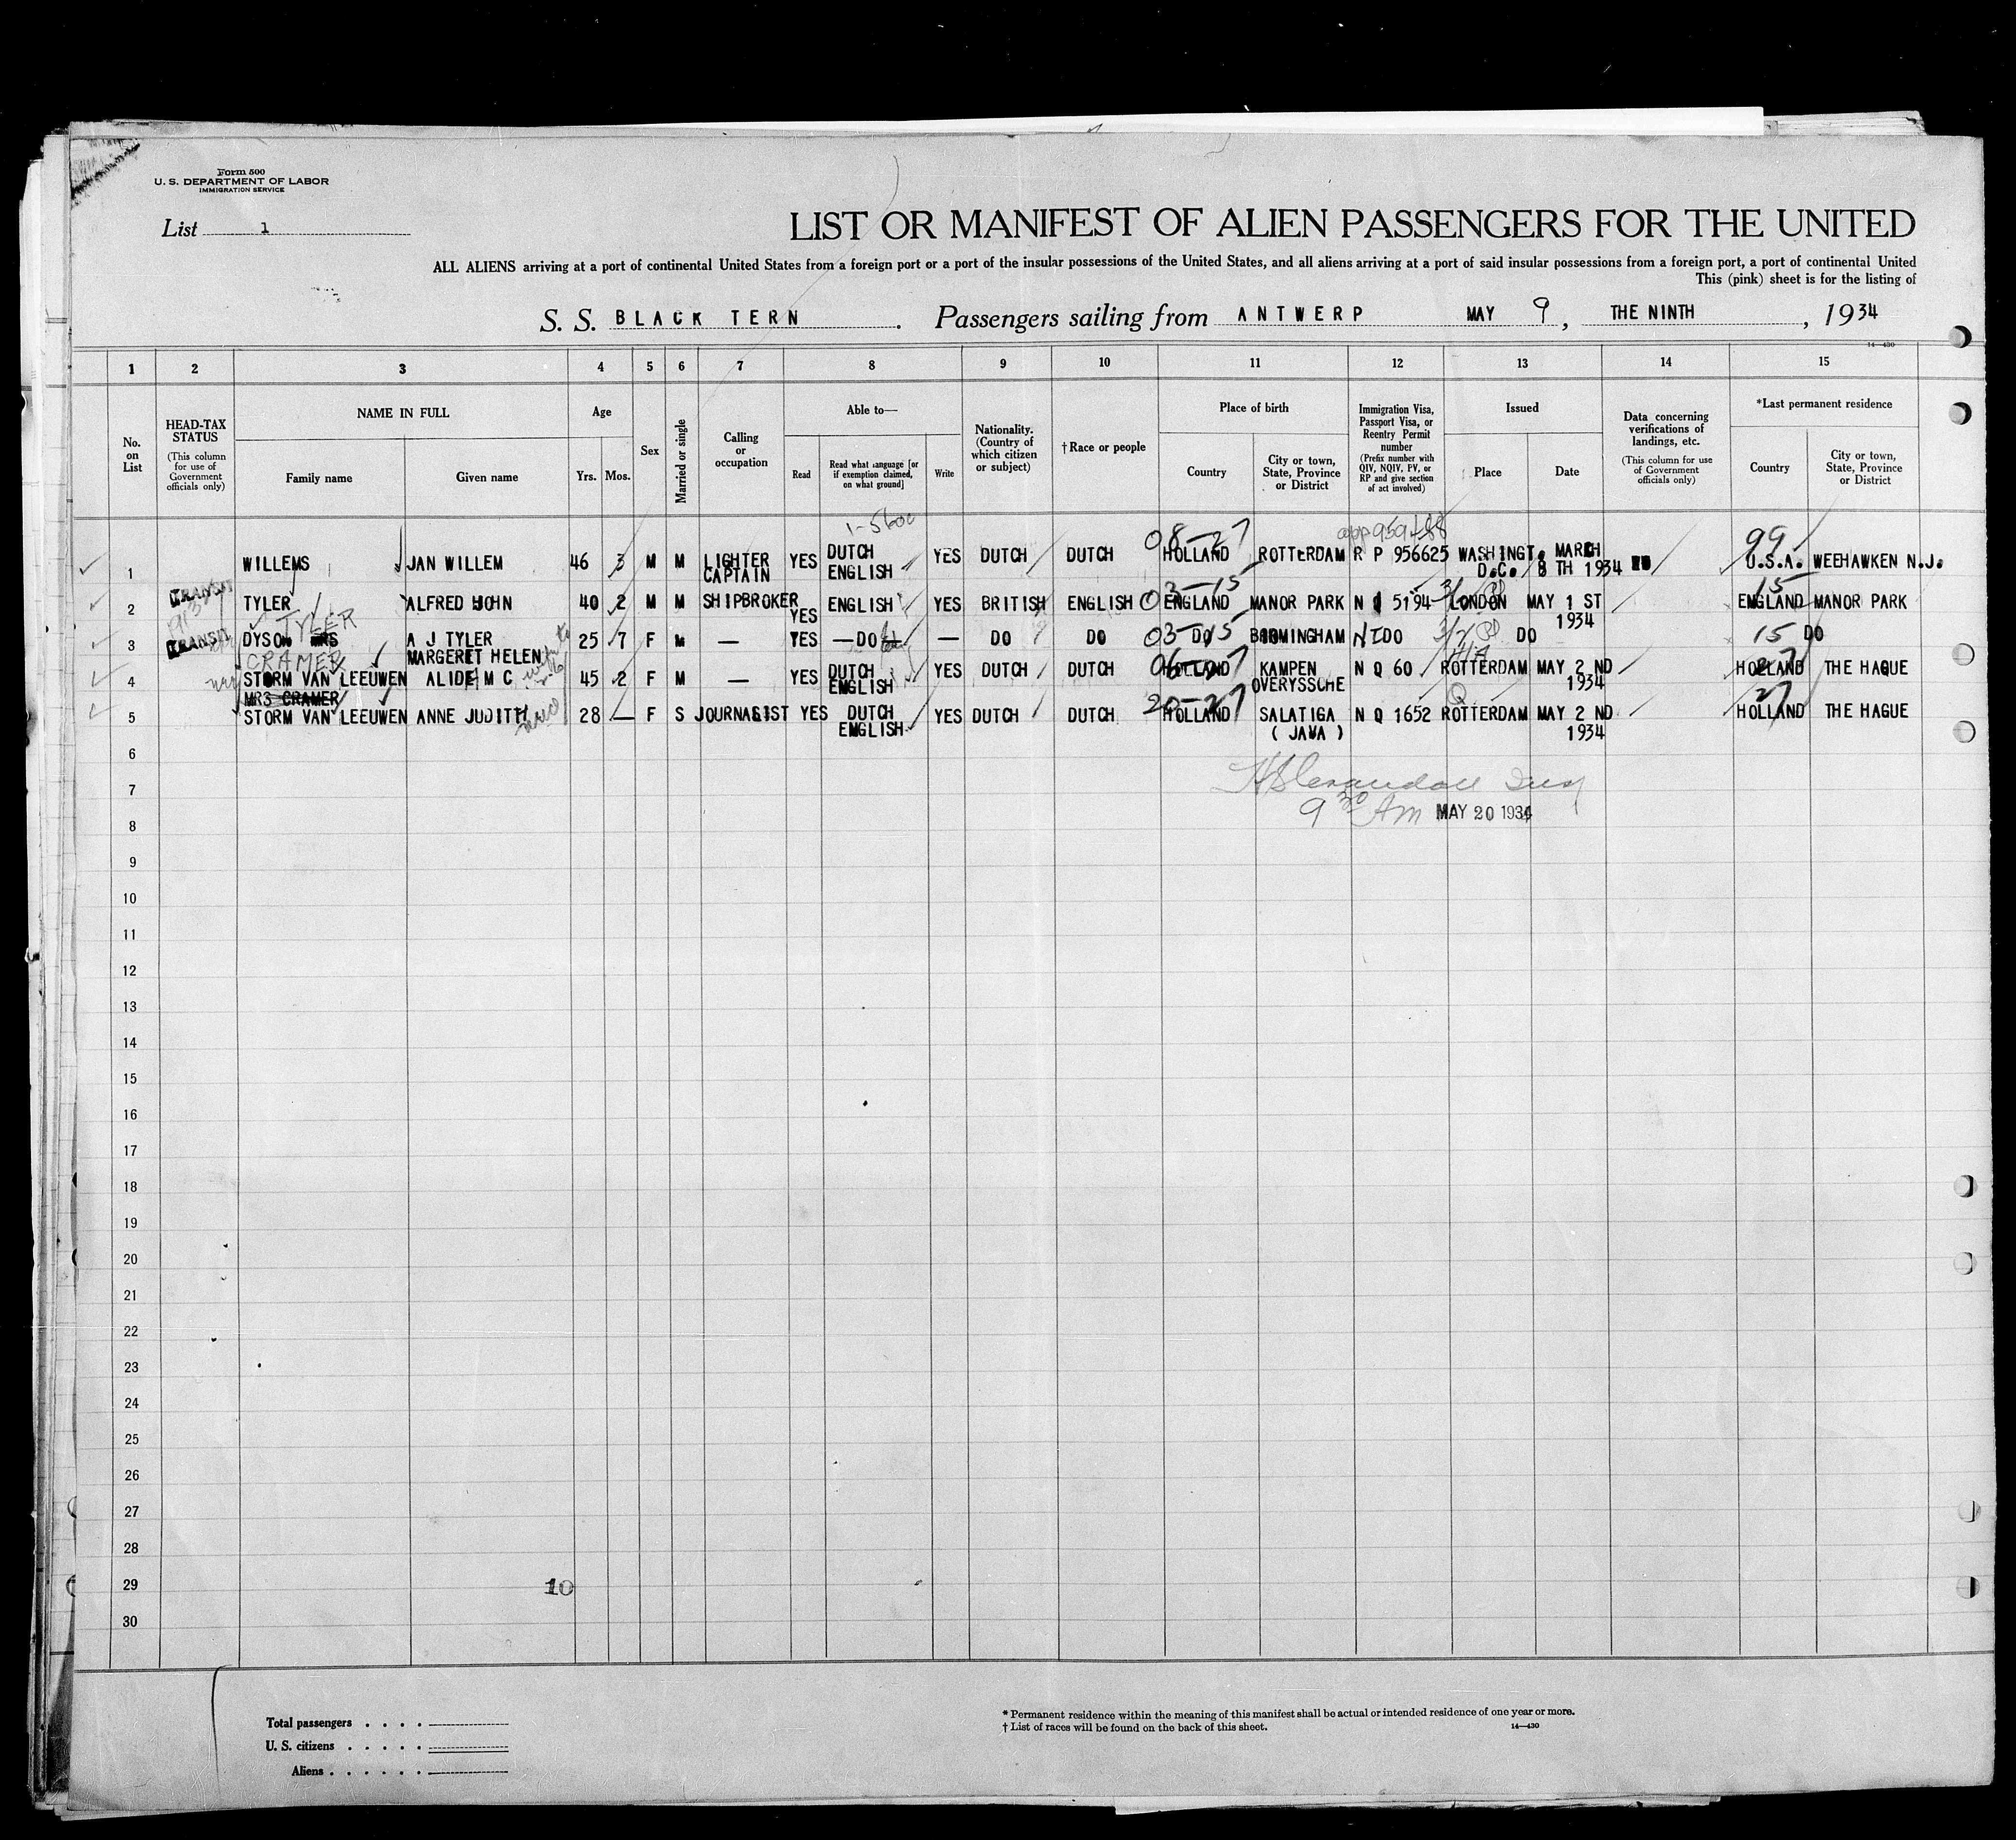 Form 500
U. S. DEPARTMENT OF LABOR
IMMIGRATION SERVICE
List 1
LIST OR MANIFEST OF ALIEN PASSENGERS FOR THE UNITED
ALL ALIENS arriving at a port of continental United States from a foreign port or a port of the insular possessions of the United States, and all aliens arriving at a port of said insular possessions from a foreign port, a port of continental United
This (pink) sheet is for the listing of
S. S. BLACK TERN . Passengers sailing from ANTWERP MAY 9, THE NINTH, 1934
14—430
1 2 3 4 5 6 7 8 9 10 11 12 13 14 15
No. on List
HEAD-TAX STATUS (This column for use of Government officials only)
NAME IN FULL
Family name
Given name
Age
Yrs. Mos.
Sex
Married or single
Calling or occupation
Able to—
Read
Read what language [or if exemption claimed, on what ground]
Write
Nationality. (Country of which citizen or subject)
†Race or people
Place of birth
Country
City or town, State, Province or District
Immigration Visa, Passport Visa, or Reentry Permit number (Prefix number with QIV, NQIV, PV, or RP and give section of act involved)
Issued
Place
Date
Data concerning verifications of landings, etc. (This column for use of Government officials only)
*Last permanent residence
Country
City or town, State, Province or District
1 WILLEMS JAN WILLEM 46 3 M M LIGHTER CAPTAIN YES DUTCH ENGLISH YES DUTCH DUTCH 08-27 HOLLAND ROTTERDAM R P 956625 WASHINGT. D.C. MARCH 8 TH 1934 99 U.S.A. WEEHAWKEN N.J.
2 TRANSIT TYLER ALFRED JOHN 40 2 M M SHIPBROKER YES ENGLISH YES BRITISH ENGLISH 03-15 ENGLAND MANOR PARK N Q 5194 LONDON MAY 1 ST 1934 15 ENGLAND MANOR PARK
TYLER
3 TRANSIT DYSON MRS A J TYLER MARGERET HELEN 25 7 F M — YES —DO — DO DO 03-15 DO BIRMINGHAM DO DO 15 DO
CRAMER
4 STORM VAN LEEUWEN ALIDE M C 45 2 F M — YES DUTCH ENGLISH YES DUTCH DUTCH 06-27 HOLLAND KAMPEN OVERYSSCHE N Q 60 ROTTERDAM MAY 2 ND 1934 27 HOLLAND THE HAGUE
MRS CRAMER
5 STORM VAN LEEUWEN ANNE JUDITH 28 — F S JOURNALIST YES DUTCH ENGLISH YES DUTCH DUTCH 20-27 HOLLAND SALATIGA ( JAVA ) N Q 1652 ROTTERDAM MAY 2 ND 1934 27 HOLLAND THE HAGUE
6
7
9 30 AM MAY 20 1934
8
9
10
11
12
13
14
15
16
17
18
19
20
21
22
23
24
25
26
27
28
29 10
30
Total passengers . . . .
U. S. citizens . . . . .
Aliens . . . . . .
* Permanent residence within the meaning of this manifest shall be actual or intended residence of one year or more.
† List of races will be found on the back of this sheet. 14—430